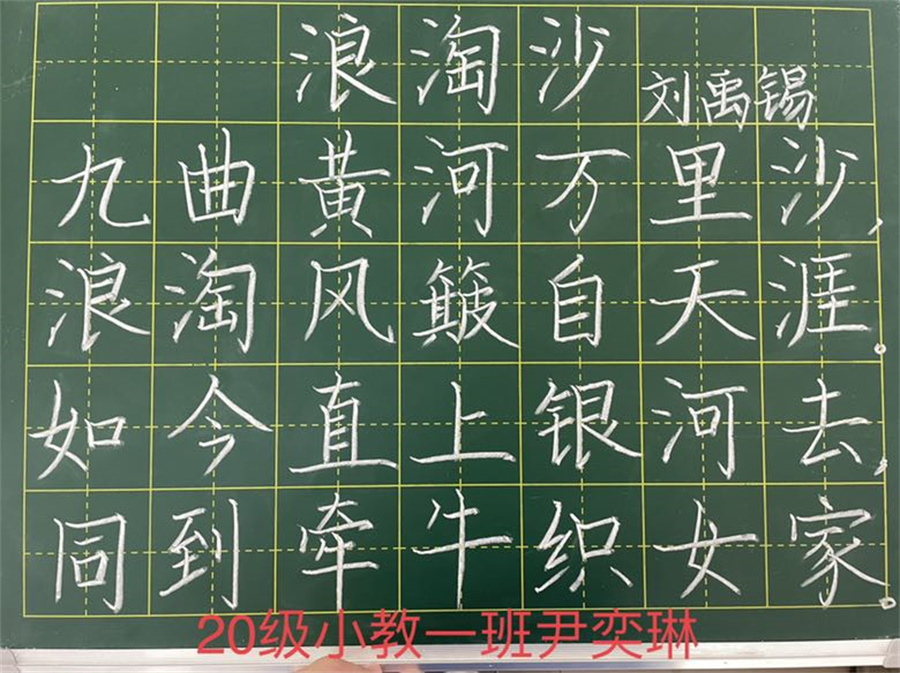 浪淘沙
刘禹锡
九曲黄河万里沙，
浪淘风簸自天涯。
如今直上银河去，
同到牵牛织女家。
20级小教一班尹奕琳